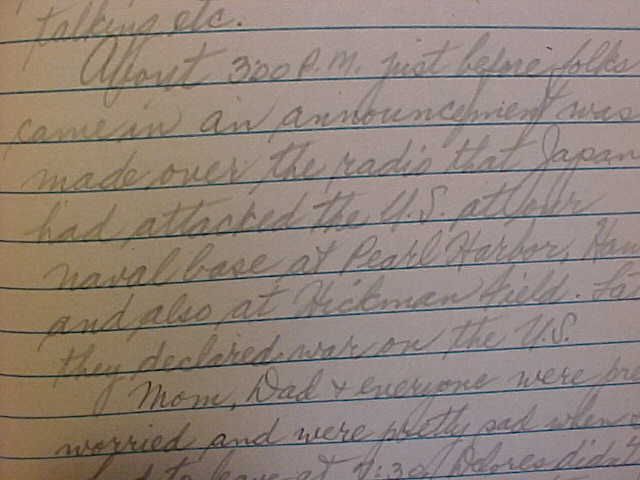 talking etc.
About 3:00 P.M. just before folks
came in an announcement was
made over the radio that Japan
had attacked the U.S. at our
naval base at Pearl Harbor, Haw
and also at Hickman field. La
they declared war on the U.S.
Mom, Dad & everyone were pre
worried and were pretty sad when
had to leave at 7:30. Delores didn't